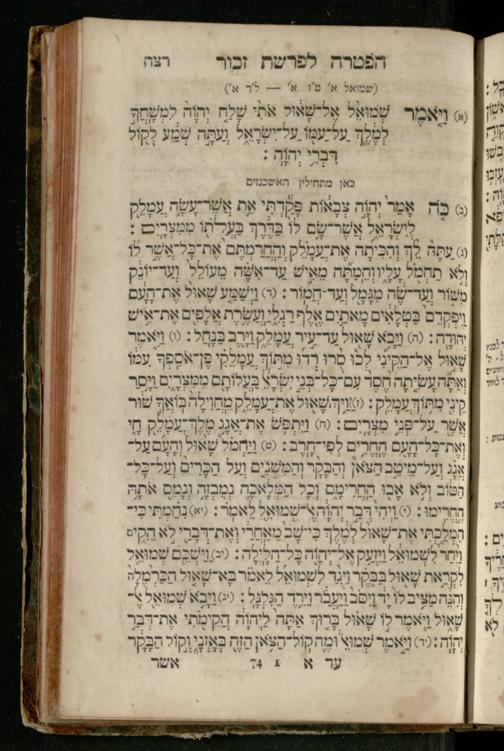 הפטרה לפרשת זכור רצח
(שמואל א׳ ט״ו א׳ — ל״ד א׳)
(א) וַיֹּאמֶר שְׁמוּאֵל אֶל־שָׁאוּל אֹתִי שָׁלַח יְהוָה לִמְשָׁחֳךָ
לְמֶלֶךְ עַל־עַמּוֹ עַל־יִשְׂרָאֵל וְעַתָּה שְׁמַע לְקוֹל
דִּבְרֵי יְהוָה׃
כאן מתחילין האשכנזים
(ב) כֹּה אָמַר יְהוָה צְבָאוֹת פָּקַדְתִּי אֵת אֲשֶׁר־עָשָׂה עֲמָלֵק
לְיִשְׂרָאֵל אֲשֶׁר־שָׂם לוֹ בַּדֶּרֶךְ בַּעֲלֹתוֹ מִמִּצְרָיִם׃
(ג) עַתָּה לֵךְ וְהִכִּיתָה אֶת־עֲמָלֵק וְהַחֲרַמְתֶּם אֶת־כָּל־אֲשֶׁר לוֹ
וְלֹא תַחְמֹל עָלָיו וְהֵמַתָּה מֵאִישׁ עַד־אִשָּׁה מֵעוֹלֵל וְעַד־יוֹנֵק
מִשּׁוֹר וְעַד־שֶׂה מִגָּמָל וְעַד־חֲמוֹר׃ (ד) וַיְשַׁמַּע שָׁאוּל אֶת־הָעָם
וַיִּפְקְדֵם בַּטְּלָאִים מָאתַיִם אֶלֶף רַגְלִי וַעֲשֶׂרֶת אֲלָפִים אֶת־אִישׁ
יְהוּדָה׃ (ה) וַיָּבֹא שָׁאוּל עַד־עִיר עֲמָלֵק וַיָּרֶב בַּנָּחַל׃ (ו) וַיֹּאמֶר
שָׁאוּל אֶל־הַקֵּינִי לְכוּ סֻּרוּ רְדוּ מִתּוֹךְ עֲמָלֵקִי פֶּן־אֹסִפְךָ עִמּוֹ
וְאַתָּה עָשִׂיתָה חֶסֶד עִם־כָּל־בְּנֵי יִשְׂרָאֵל בַּעֲלוֹתָם מִמִּצְרָיִם וַיָּסַר
קֵינִי מִתּוֹךְ עֲמָלֵק׃ (ז) וַיַּךְ שָׁאוּל אֶת־עֲמָלֵק מֵחֲוִילָה בּוֹאֲךָ שׁוּר
אֲשֶׁר עַל־פְּנֵי מִצְרָיִם׃ (ח) וַיִּתְפֹּשׂ אֶת־אֲגַג מֶלֶךְ־עֲמָלֵק חָי
וְאֶת־כָּל־הָעָם הֶחֱרִים לְפִי־חָרֶב׃ (ט) וַיַּחְמֹל שָׁאוּל וְהָעָם עַל־
אֲגָג וְעַל־מֵיטַב הַצֹּאן וְהַבָּקָר וְהַמִּשְׁנִים וְעַל הַכָּרִים וְעַל־כָּל־
הַטּוֹב וְלֹא אָבוּ הַחֲרִימָם וְכָל הַמְּלָאכָה נְמִבְזָה וְנָמֵס אֹתָהּ
הֶחֱרִימוּ׃ (י) וַיְהִי דְּבַר יְהוָה אֶל־שְׁמוּאֵל לֵאמֹר׃ (יא) נִחַמְתִּי כִּי־
הִמְלַכְתִּי אֶת־שָׁאוּל לְמֶלֶךְ כִּי־שָׁב מֵאַחֲרַי וְאֶת־דְּבָרַי לֹא הֵקִים
וַיִּחַר לִשְׁמוּאֵל וַיִּזְעַק אֶל־יְהוָה כָּל־הַלָּיְלָה׃ (יב) וַיַּשְׁכֵּם שְׁמוּאֵל
לִקְרַאת שָׁאוּל בַּבֹּקֶר וַיֻּגַּד לִשְׁמוּאֵל לֵאמֹר בָּא־שָׁאוּל הַכַּרְמֶלָה
וְהִנֵּה מַצִּיב לוֹ יָד וַיִּסֹּב וַיַּעֲבֹר וַיֵּרֶד הַגִּלְגָּל׃ (יג) וַיָּבֹא שְׁמוּאֵל אֶל־
שָׁאוּל וַיֹּאמֶר לוֹ שָׁאוּל בָּרוּךְ אַתָּה לַיהוָה הֲקִימֹתִי אֶת־דְּבַר
יְהוָה׃ (יד) וַיֹּאמֶר שְׁמוּאֵל וּמֶה קוֹל־הַצֹּאן הַזֶּה בְּאָזְנָי וְקוֹל הַבָּקָר
עד א I 74 אשר